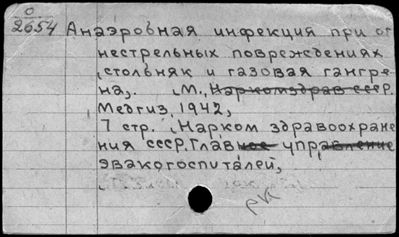 0
2654
Анаэробная инфекция при ог
нестрельных повреждениях
(столбняк и газовая гангре-
на). М., Наркомздрав СССР.
Медгиз, 1942,
7 стр. (Нарком здравоохране
ния СССР. Главное управление
эвакогоспиталей,
рк